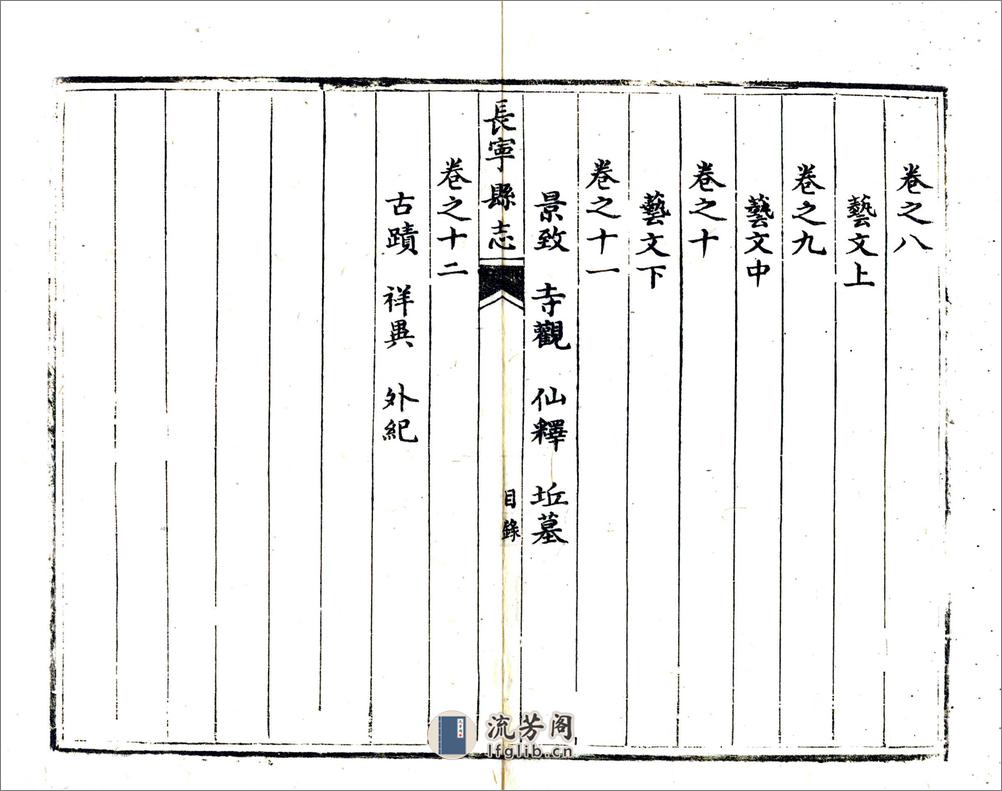 卷之八
藝文上
卷之九
藝文中
卷之十
藝文下
卷之十一
景致 寺觀 仙釋 坵墓
長寧縣志 目錄
卷之十二
古蹟 祥異 外紀
流芳阁
lfglib.cn